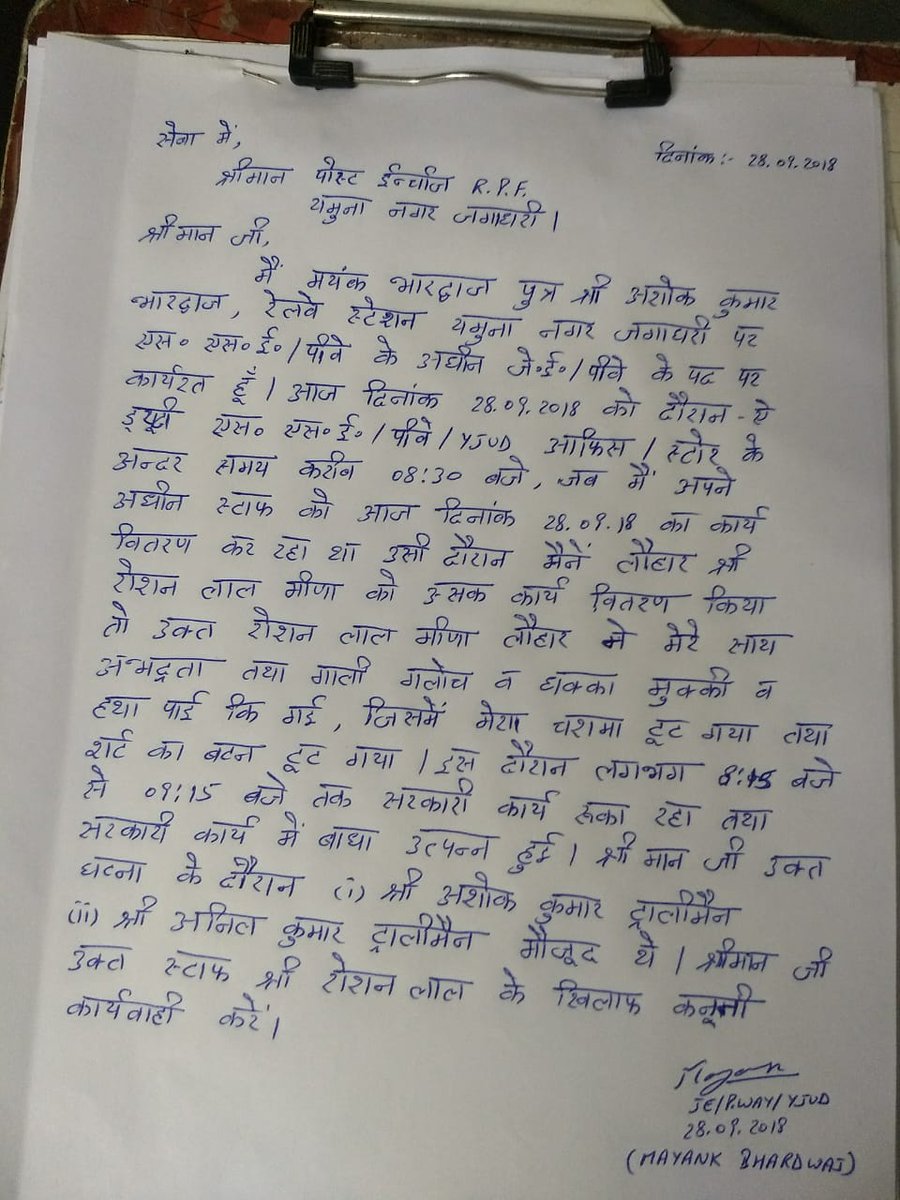 सेवा में,
दिनांक:- 28.09.2018
श्रीमान पोस्ट ईन्चार्ज R.P.F.
यमुना नगर जगाधरी।
श्रीमान जी,
मैं मयंक भारद्वाज पुत्र श्री अशोक कुमार
भारद्वाज, रेलवे स्टेशन यमुना नगर जगाधरी पर
एस० एस०ई०/पीवे के अधीन जे०ई०/पीवे के पद पर
कार्यरत हूँ। आज दिनांक 28.09.2018 को दौरान-ऐ
ड्यूटी एस० एस०ई०/पीवे/YJUD आफिस/स्टोर के
अन्दर समय करीब 08:30 बजे, जब मैं अपने
अधीन स्टाफ को आज दिनांक 28.09.18 का कार्य
वितरण कर रहा था उसी दौरान मैनें लौहार श्री
रोशन लाल मीणा को उसक कार्य वितरण किया
तो उक्त रोशन लाल मीणा लौहार ने मेरे साथ
अभद्रता तथा गाली गलोच व धक्का मुक्की व
हथा पाई कि गई, जिसमें मेरा चशमा टूट गया तथा
शर्ट का बटन टूट गया। इस दौरान लगभग 8:45 बजे
से 09:15 बजे तक सरकारी कार्य रूका रहा तथा
सरकारी कार्य में बाधा उत्पन्न हुई। श्रीमान जी उक्त
घटना के दौरान (i) श्री अशोक कुमार ट्रालीमैन
(ii) श्री अनिल कुमार ट्रालीमैन मौजूद थे। श्रीमान जी
उक्त स्टाफ श्री रोशन लाल के खिलाफ कनूनी
कार्यवाही करें।
Mayank
JE/P.WAY/YJUD
28.09.2018
(MAYANK BHARDWAJ)